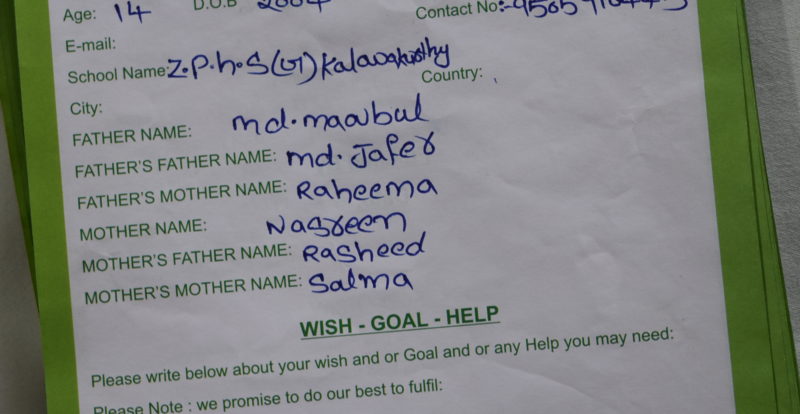 Age: 14 D.O.B 2004 Contact No:-
E-mail:
School Name: Z.P.h.S (G) Kalawakurthy
City: Country:
FATHER NAME: md. maabul
FATHER'S FATHER NAME: md. Jafer
FATHER'S MOTHER NAME: Raheema
MOTHER NAME: Nasreen
MOTHER'S FATHER NAME: Rasheed
MOTHER'S MOTHER NAME: Salma
WISH - GOAL - HELP
Please write below about your wish and or Goal and or any Help you may need:
Please Note : we promise to do our best to fulfil: